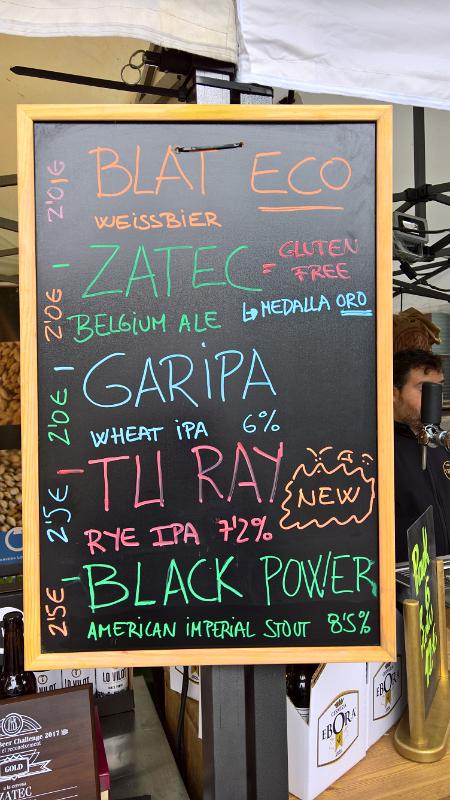 2'0€ BLAT ECO
WEISSBIER
2'0€ - ZATEC = GLUTEN FREE
BELGIUM ALE ↳ MEDALLA ORO
2'0€ - GARIPA
WHEAT IPA 6%
2'5€ - TU RAY
NEW
RYE IPA 7'2%
2'5€ - BLACK POWER
AMERICAN IMPERIAL STOUT 8'5%
LO VILOT
LO VILOT
Beer Challenge 2017
GOLD
ZATEC
CERVEZA
EBORA
EBORA